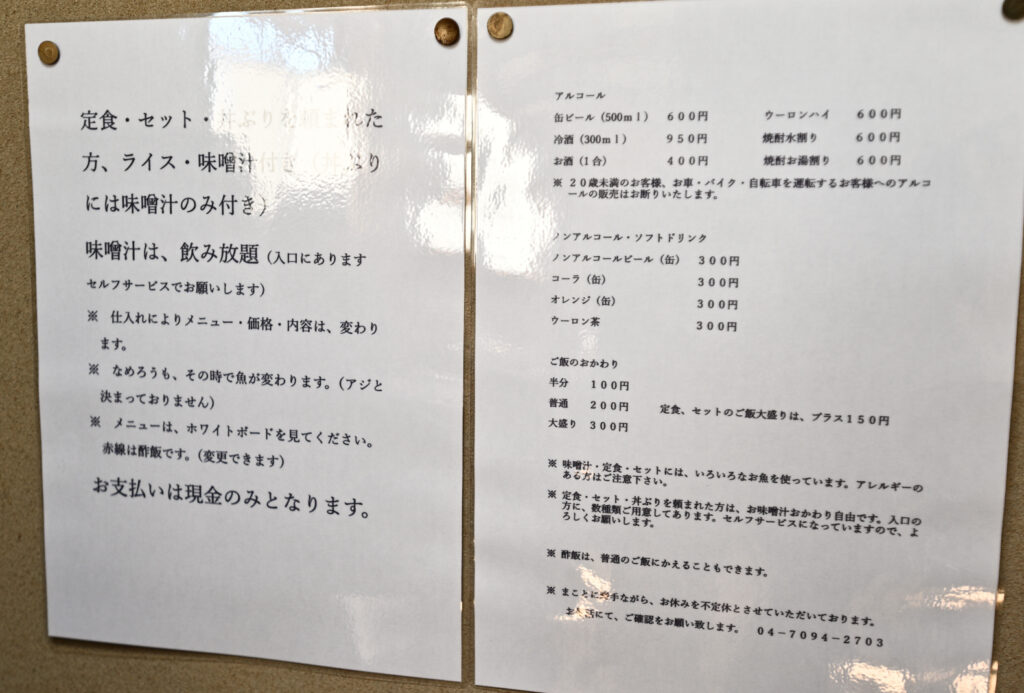 定食・セット・丼ぶりを頼まれた
方、ライス・味噌汁付き（丼ぶり
には味噌汁のみ付き）
味噌汁は、飲み放題（入口にあります
セルフサービスでお願いします）
※　仕入れによりメニュー・価格・内容は、変わり
ます。
※　なめろうも、その時で魚が変わります。（アジと
決まっておりません）
※　メニューは、ホワイトボードを見てください。
赤線は酢飯です。（変更できます）
お支払いは現金のみとなります。
アルコール
缶ビール（500ｍｌ）　６００円　ウーロンハイ　６００円
冷酒（300ｍｌ）　９５０円　焼酎水割り　６００円
お酒（1合）　４００円　焼酎お湯割り　６００円
※ ２０歳未満のお客様、お車・バイク・自転車を運転するお客様へのアルコ
ールの販売はお断りいたします。
ノンアルコール・ソフトドリンク
ノンアルコールビール（缶）　３００円
コーラ（缶）　３００円
オレンジ（缶）　３００円
ウーロン茶　３００円
ご飯のおかわり
半分　１００円
普通　２００円　定食、セットのご飯大盛りは、プラス１５０円
大盛り　３００円
※ 味噌汁・定食・セットには、いろいろなお魚を使っています。アレルギーの
ある方はご注意下さい。
※ 定食・セット・丼ぶりを頼まれた方は、お味噌汁おかわり自由です。入口の
方に、数種類ご用意してあります。セルフサービスになっていますので、よ
ろしくお願いします。
※ 酢飯は、普通のご飯にかえることもできます。
※ まことに勝手ながら、お休みを不定休とさせていただいております。
お電話にて、ご確認をお願い致します。　０４－７０９４－２７０３